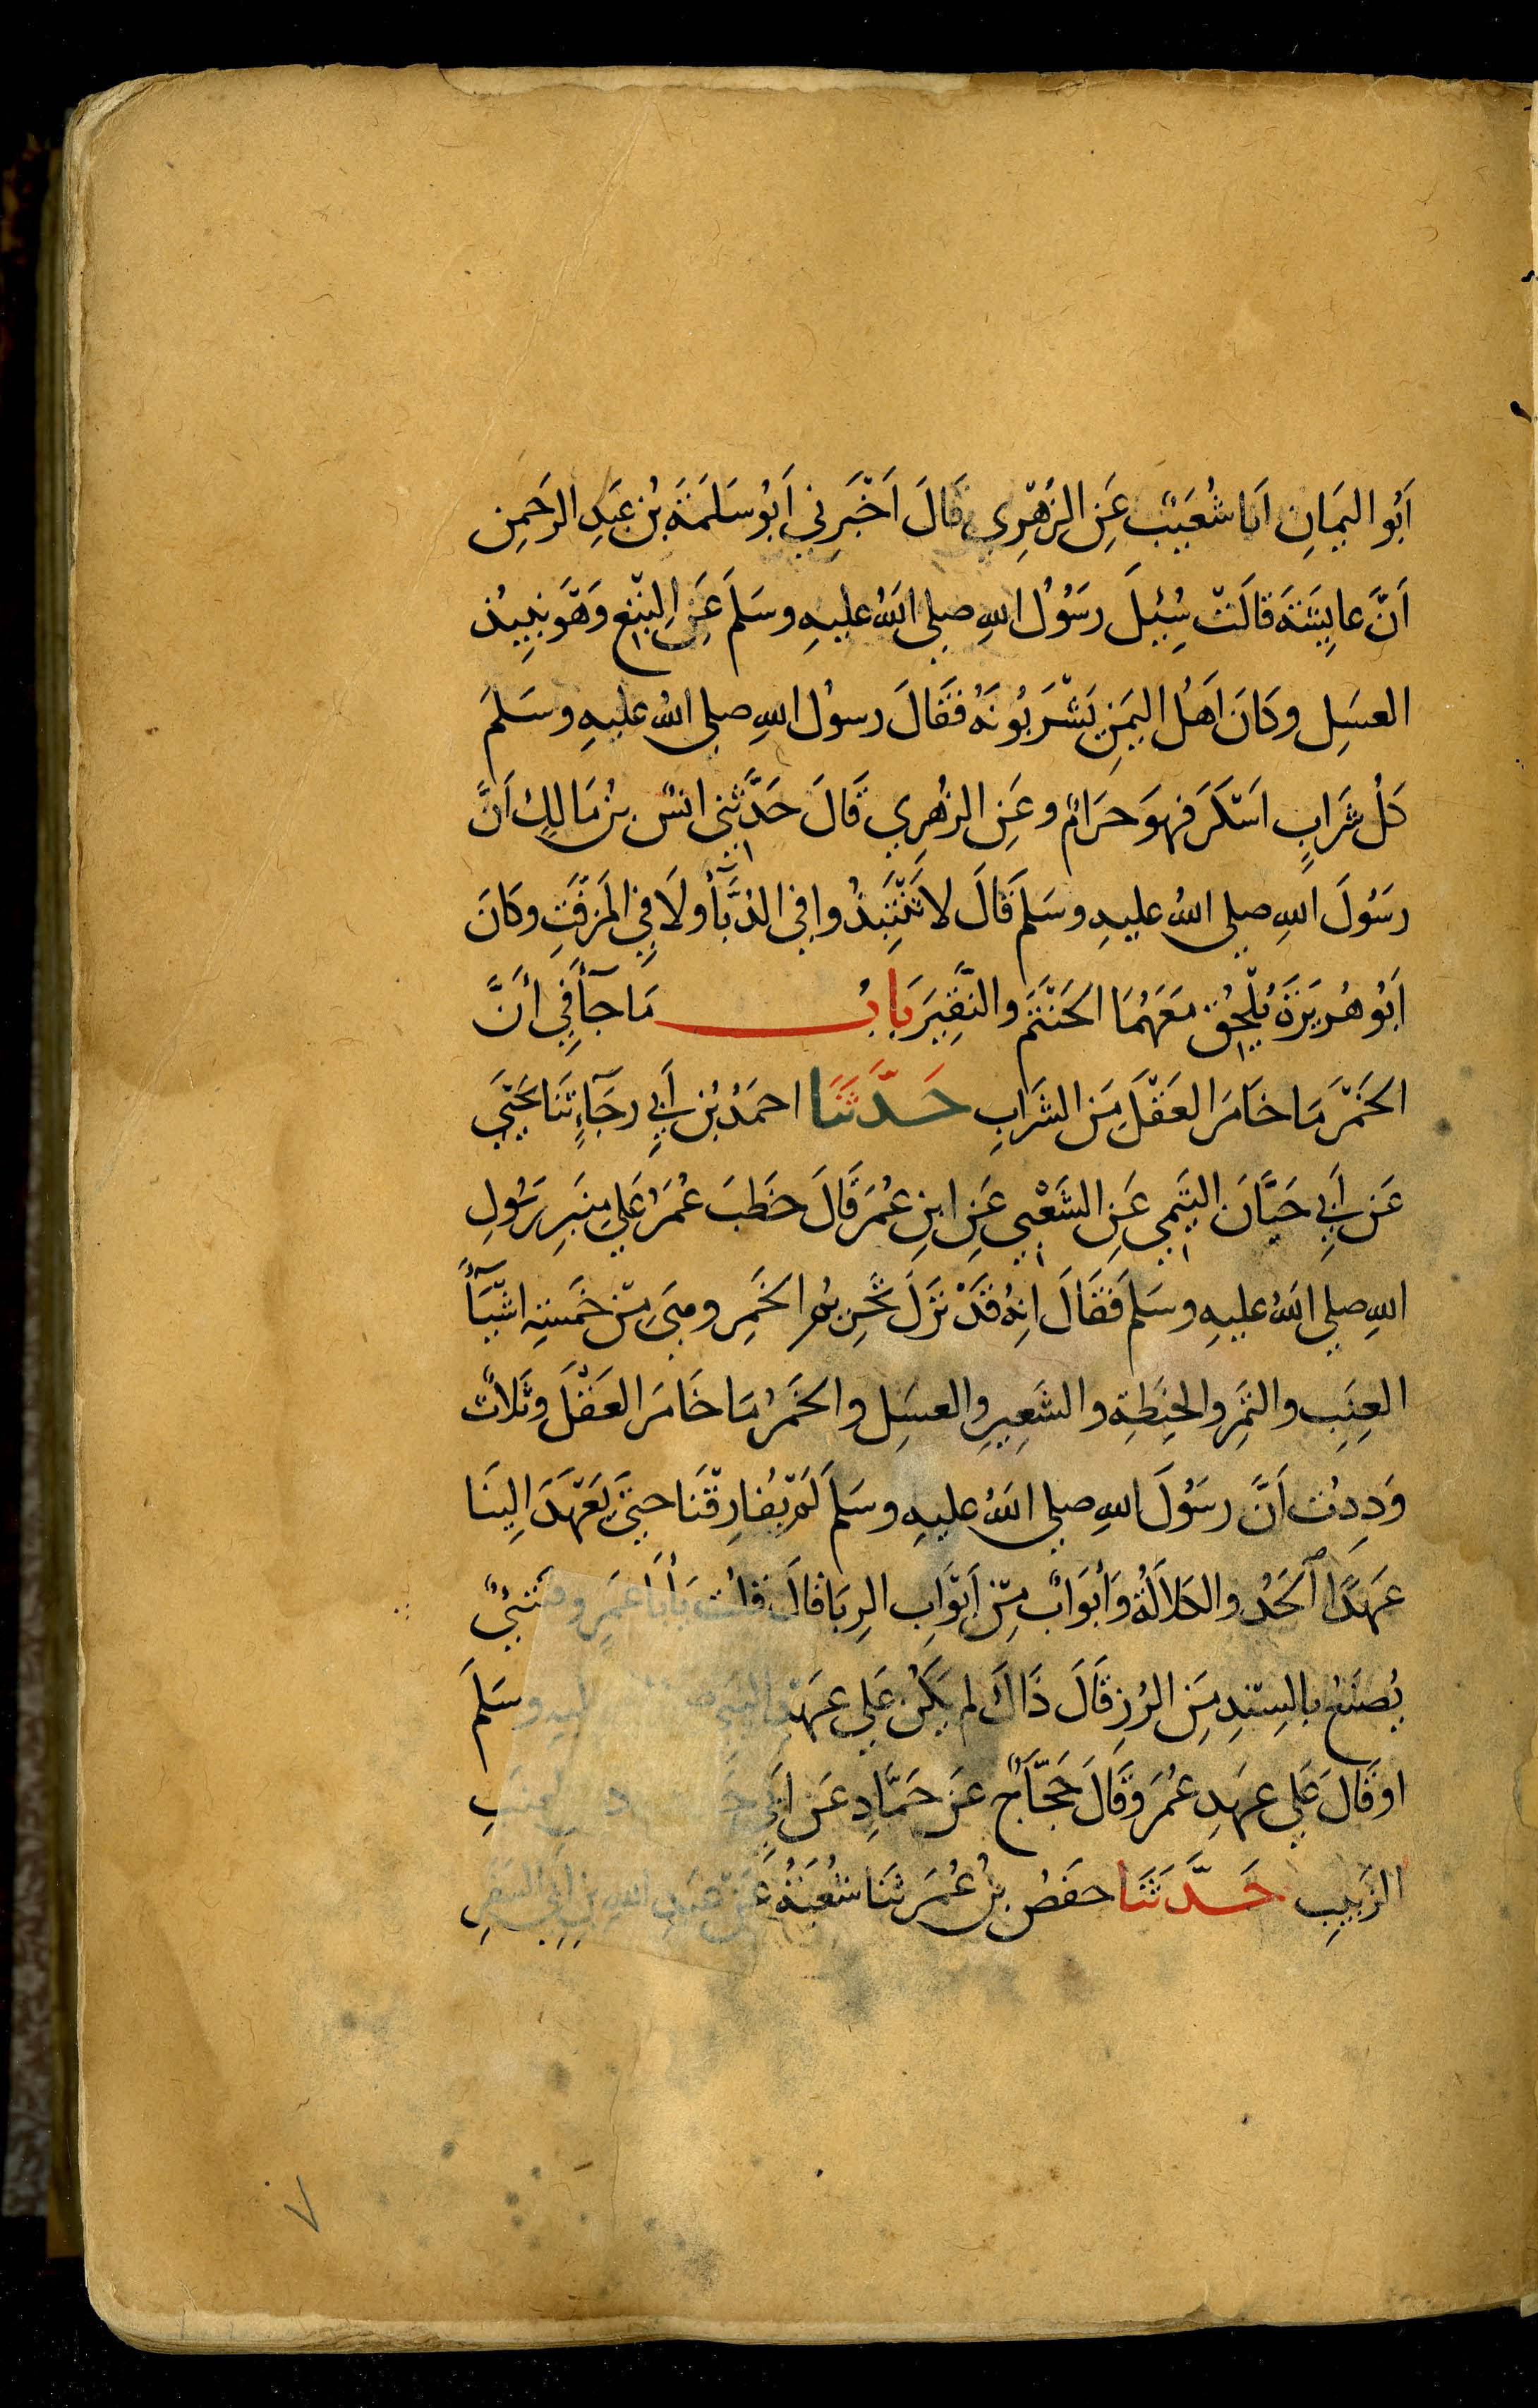 اَبُو اليَمَانِ اَنَا شُعَيْبٌ عَنِ الزُهْرِي قَالَ اَخْبَرَنِي اَبُو سَلَمَةَ بْنُ عَبْدِ الرَحْمٰنِ
اَنَّ عَايِشَةَ قالَتْ سُئِلَ رَسُوْلُ اللهِ صلى اللهُ عليهِ وسَلمَ عَنِ البِتْعِ وَهْوَ نَبِيذُ
العسَلِ وكَانَ اَهْلُ اليَمَنِ يَشْرَبُونَهُ فَقَالَ رسولُ اللهِ صلى اللهُ عليهِ وسَلمَ
كلُ شَرَابٍ اَسْكَرَ فهوَ حرَامٌ وعَنِ الزُهْرِي قَالَ حَدَّثَنِي انسُ بنُ مَالِكٍ اَنَّ
رسُولَ اللهِ صلى اللهُ عليهِ وسَلمَ قَالَ لا تَنْتَبِذُوا فِي الدُبَّآءِ ولَا فِي المُزَفَّتِ وكَانَ
اَبُو هُرَيْرَةَ يُلْحِقُ مَعَهُمَا الحَنْتَمَ والنَّقِيرَ بَابُ مَا جَآءَ فِي أَنَّ
الخَمْرَ مَا خَامَرَ العَقْلَ مِنَ الشَرَابِ حَدَّثَنَا احمَدُ بْنُ أَبِي رجَآءٍ ثنَا يَحْيَى
عَن أَبِي حَيَّانَ التَيْمِي عَنِ الشَعْبِي عَنِ ابنِ عُمَرَ قَالَ خطَبَ عُمَرُ عَلى مِنبَرِ رَسُولِ
اللهِ صلى اللهُ عليهِ وسَلمَ فَقَالَ انهُ قَدْ نَزَلَ تَحْرِيمُ الخَمرِ وهيَ مِنْ خَمْسَةِ اشْيَآءَ
العِنَبِ والتَمْرِ والحِنطَةِ والشَعِيرِ والعسَلِ والخَمْرُ مَا خَامَرَ العَقْلَ وثَلاثٌ
وَدِدتُ اَنَّ رسُولَ اللهِ صلى اللهُ عليهِ وسَلمَ لَمْ يُفَارِقْنَا حتى يَعْهَدَ الِينَا
عَهدًا الجَدُّ والكَلالَةُ وَأَبْوَابٌ مِنْ أَبْوَابِ الرِبَا قَالَ قلتُ يَا أَبَا عَمْرٍو فَشَيْءٌ
يُصنَعُ بالسِنْدِ مِنَ الرُزِ قَالَ ذَاكَ لم يَكُنْ عَلى عهدِ النبي عليهِ وسَلمَ
او قَالَ عَلى عهدِ عُمَرَ وقَالَ حَجَّاجٌ عَنْ حَمَّادٍ عَنْ ابِي العِنَبِ
الزَبِيبِ حَدَّثَنَا حفصُ بنُ عُمَرَ ثنَا شُعْبَةُ عَنْ عَبْدِ اللهِ بنِ أبِي السَفَرِ
٧